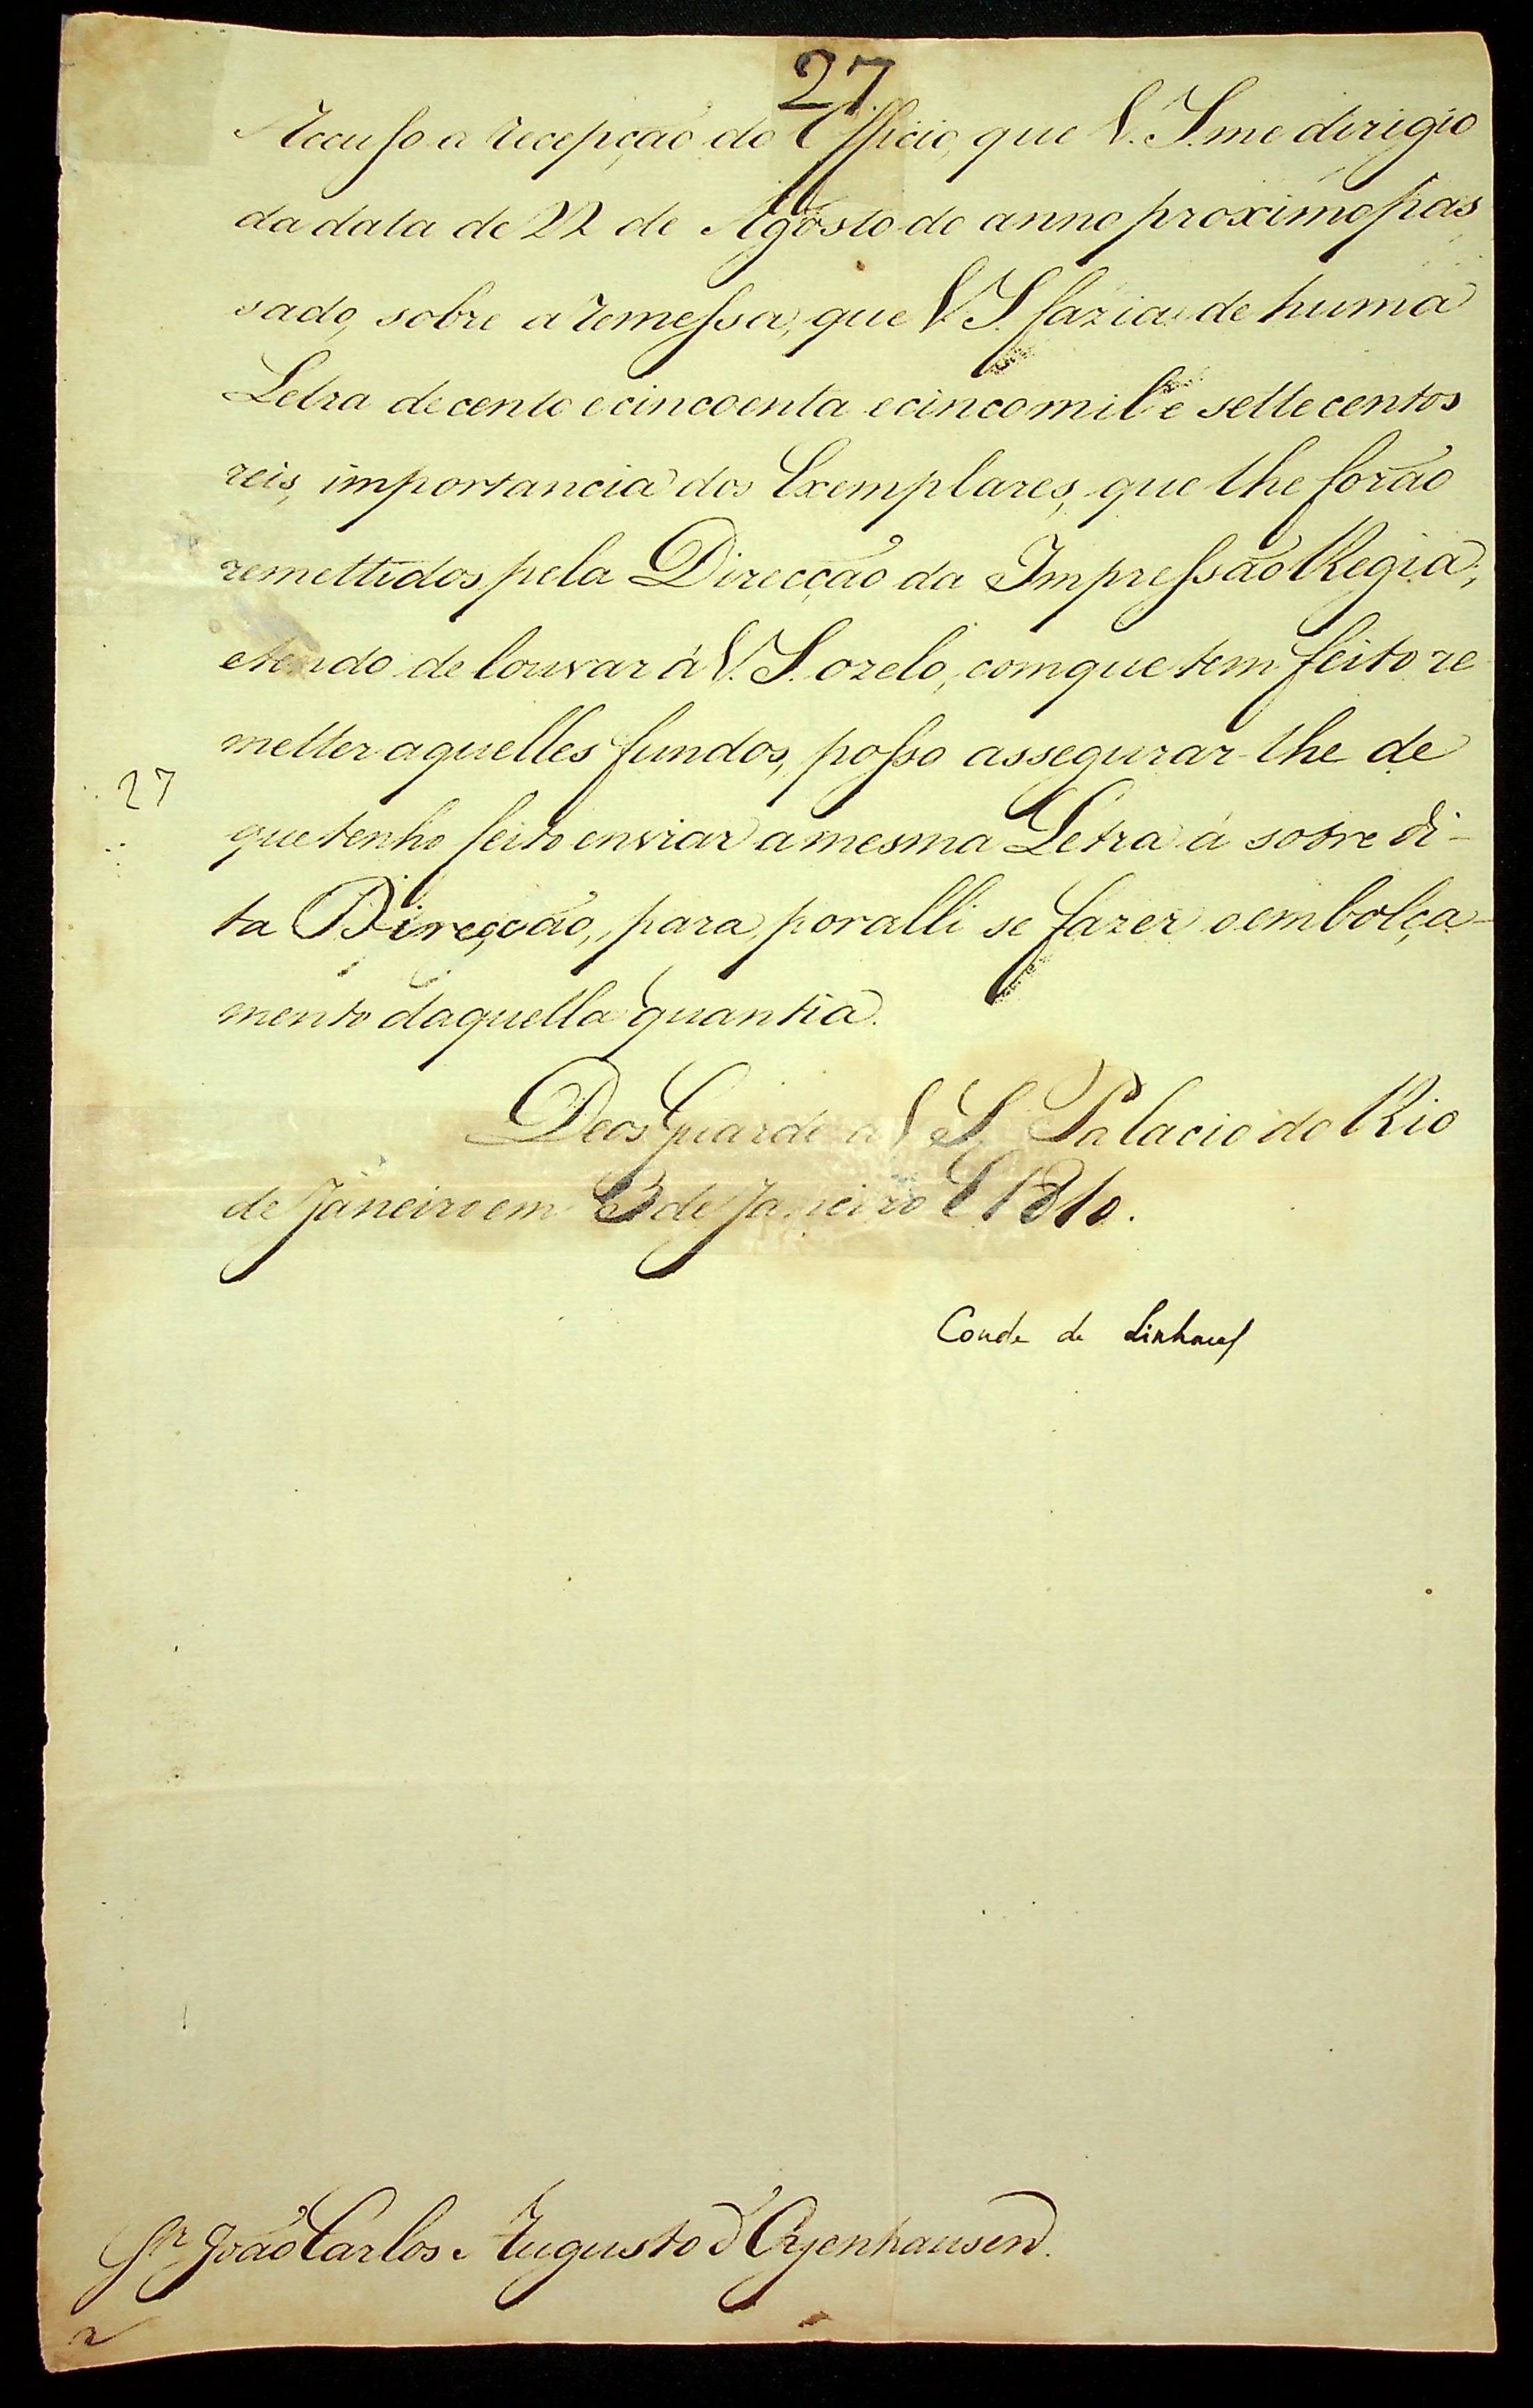 27
Accuso a recepção do Officio, que V. S. me dirigio
da data de 22 de Agosto do anno proximo pas
sado, sobre a remessa, que V. S. fazia de huma
Letra de cento e cincoenta e cinco mil e sette centos
reis, importancia dos Exemplares, que lhe forão
remettidos pela Direcção da Impressão Regia;
e tendo de louvar á V. S. o zelo, com que tem feito re
metter aquelles fundos, posso assegurar-lhe de
27
que tenho feito enviar a mesma Letra á sobre di-
ta Direcção, para por alli se fazer o embolça-
mento daquella quantia.
Deos Guarde a V. S. Palacio do Rio
de Janeiro em 3 de Janeiro 1810.
Conde de Linhares
Sr. João Carlos Augusto d'Oyenhausen.